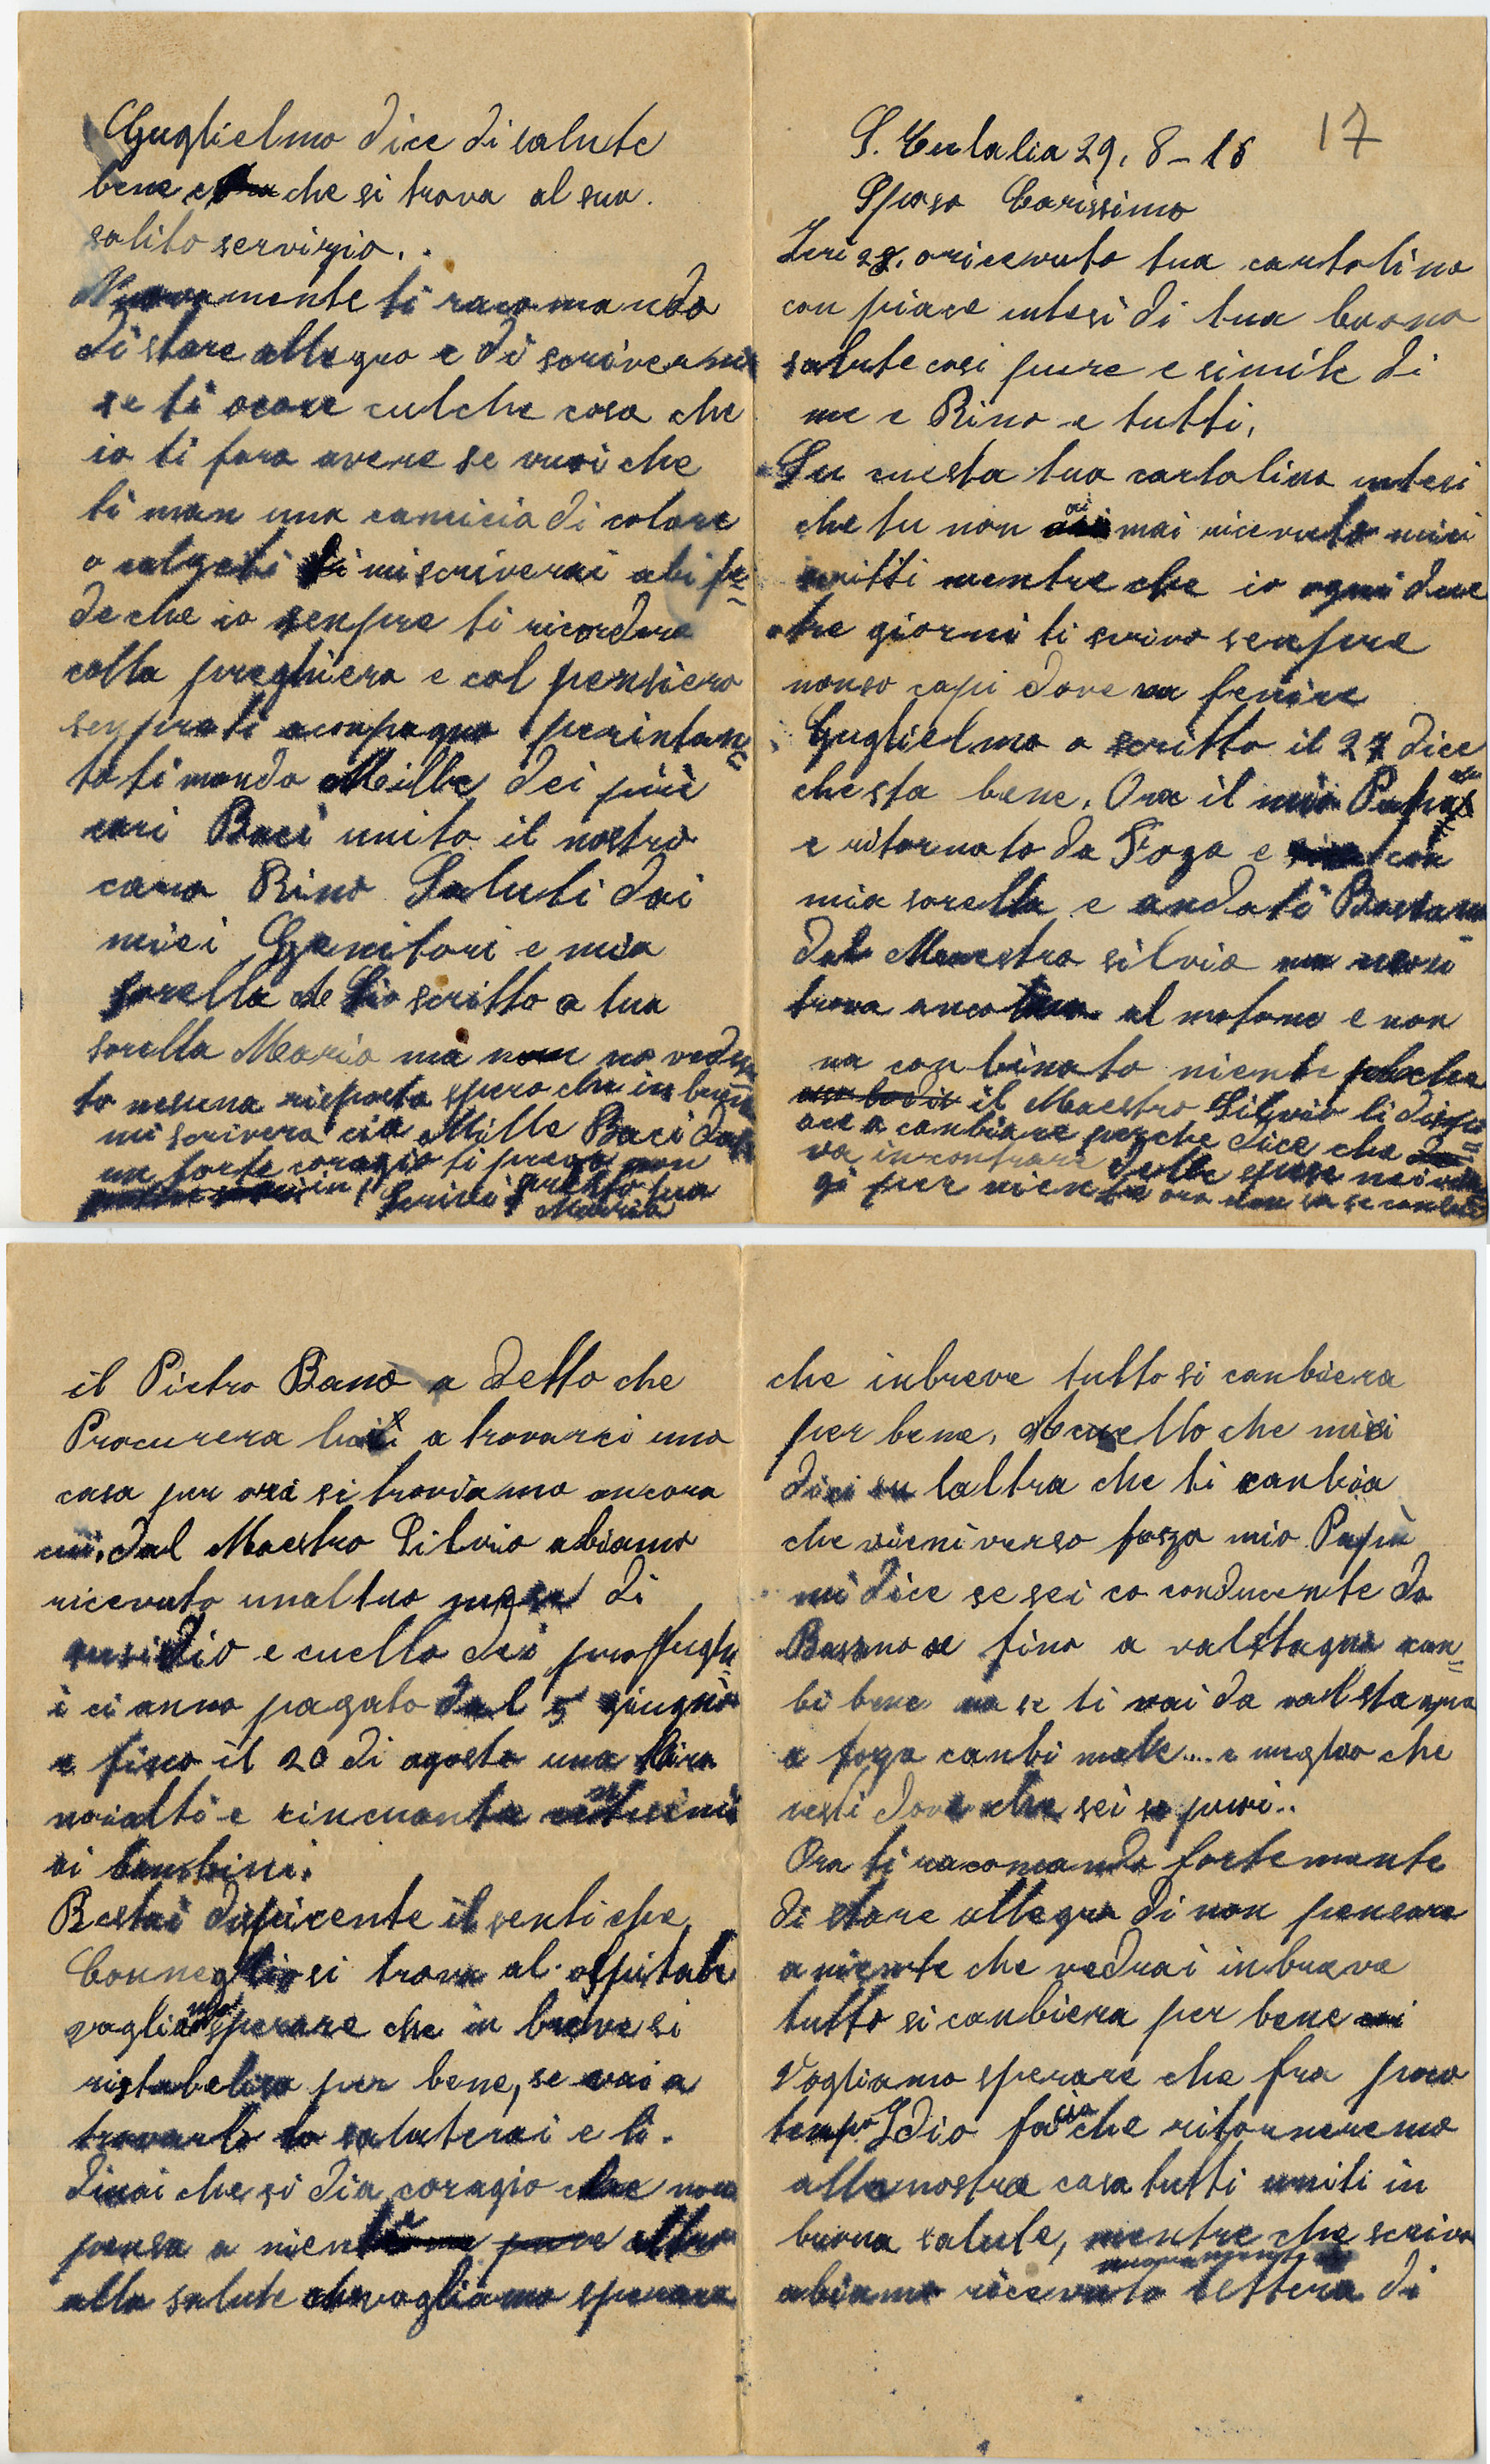 17
S. Eulalia 29, 8-16
Sposo Carissimo
Ieri 28. o ricevuto tua cartolina
con piace intesi di tua buona
salute cosi pure e simile di
me e Rino e tutti,
Su cuesta tua cartolina intesi
che tu non ai mai ricevuto miei
scritti mentre che io ogni due
tre giorni ti scrivo senpre
nonso capi dove va fenire
Guglielmo a scritto il 27 dice
che sta bene. Ora il mio
e ritornato da Foza e con
mia sorella e andati
dal Maestro silvio
trova anco al e non
na conbinato niente
il Maestro Silvio li dispi=
ace a canbiare perche dice che
va incontrare delle spese nei
gi per niente ora non sa se
il Pietro Bano a detto che
Procurera a trovarci una
casa per ora si troviamo ancora
cui. dal Maestro Silvio abiamo
ricevuto unaltro mese di
susidio e cuello dei profughi
i ci anno pagato dal 5 giugno
e fino il 20 di agosto una lira
noialti e cincuanta centesimi
ai bambini.
Restai dispicente il senti che
si trova al ospitale
vogliamo sperare che in breve si
ristabelisa per bene, se vai a
trovarlo lo saluterai e li
dirai che si dia coragio che non
pensa a niente altro
alla salute che vogliamo sperare
che inbreve tutto si canbiera
per bene. cuello che mi
dici su laltra che ti canbia
che vieni verso fosza mio Papà
mi dice se sei co conducente da
Basano e fino a valstagna can=
bi bene ma se ti vai da valstagna
a foza canbi male.... e meglio che
resti dove che sei se puoi..
Ora ti racomando fortemente
di stare allegro di non pensare
a niente che vedrai inbreve
tutto si canbiera per bene
Vogliamo sperare che fra poco
tempo Idio facia che ritorneremo
alla nostra casa tutti uniti in
buona salute, mentre che scrivo
abiamo ricevuto nuovamente lettera di
Guglielmo dice di salute
bene e che si trova al suo.
solito servizio..
Nuovamente ti racomando
di stare allegro e di scrivermi
se ti ocore culche cosa che
io ti faro avere se vuoi che
ti man una camicia di colore
o calzeti mi scriverai abi fe=
de che io senpre ti ricordero
colla preghiera e col pensiero
senpre ti aconpagno perintan=
to ti mando Mille dei più
cari Baci unito il nostro
caro Rino Saluti dai
miei Genitori e mia
sorella scritto a tua
sorella Maria ma no vedu
to nesuna risposta spero che in breve
mi scrivera Mille Baci
un forte coragio ti prego non
Scrivi presto tua
Maria